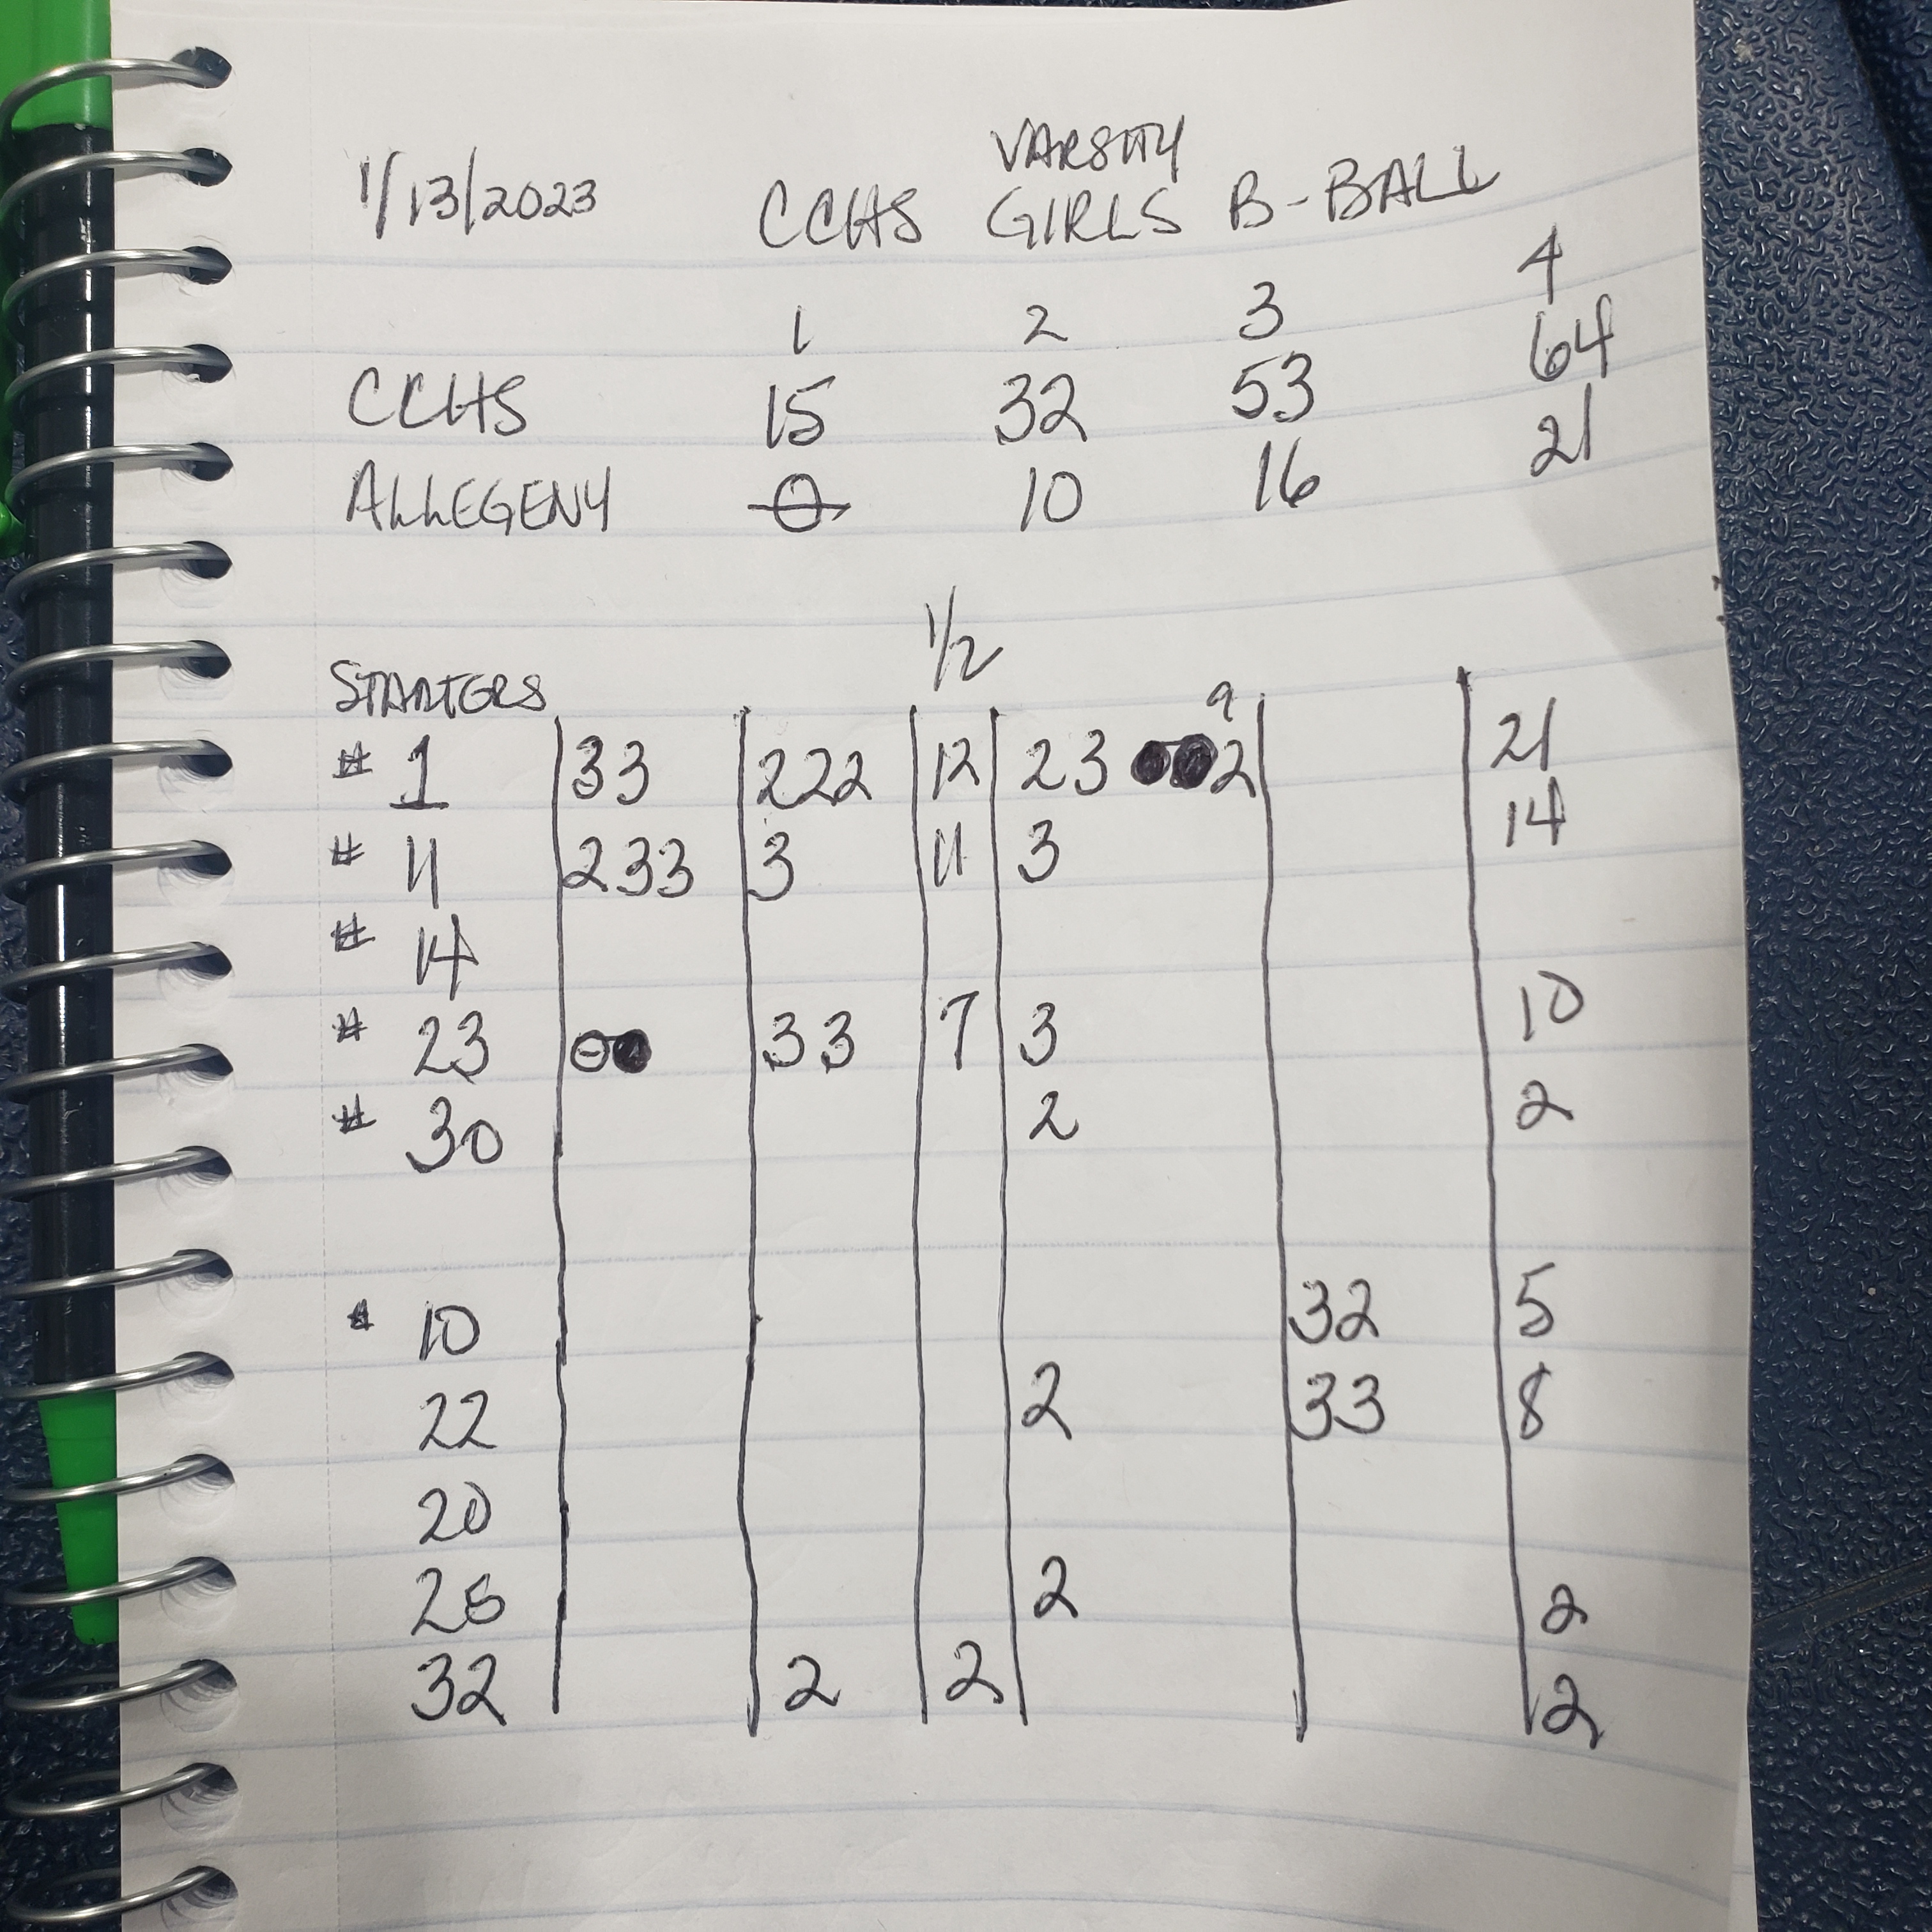 VARSITY
1/13/2023 CCHS GIRLS B-BALL
1 2 3 4
CCHS 15 32 53 64
ALLEGENY 0 10 16 21
1/2
STARTERS 9
# 1 33 222 12 23 2 21
# 11 233 3 11 3 14
# 14
# 23 33 7 3 10
# 30 2 2
# 10 32 5
22 2 33 8
20
25 2 2
32 2 2 2